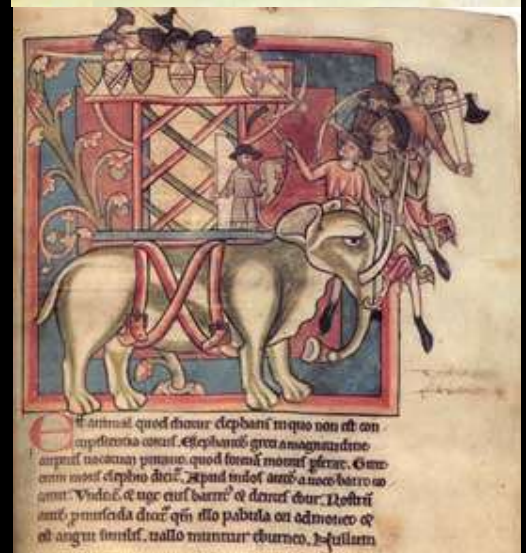 Est animal quod dicitur elephans in quo non est con
cupiscentia coitus. Elephantem greci a magnitudine
corporis vocatum putant, quod formam montis
enim mons elephio dicitur. Apud indos autem a voce barro
Unde et vox eius et dentes ebur. Rostrum
autem dicitur illo pabula ori admovet et
est angui similis, vallo munitur eburneo. Nullum